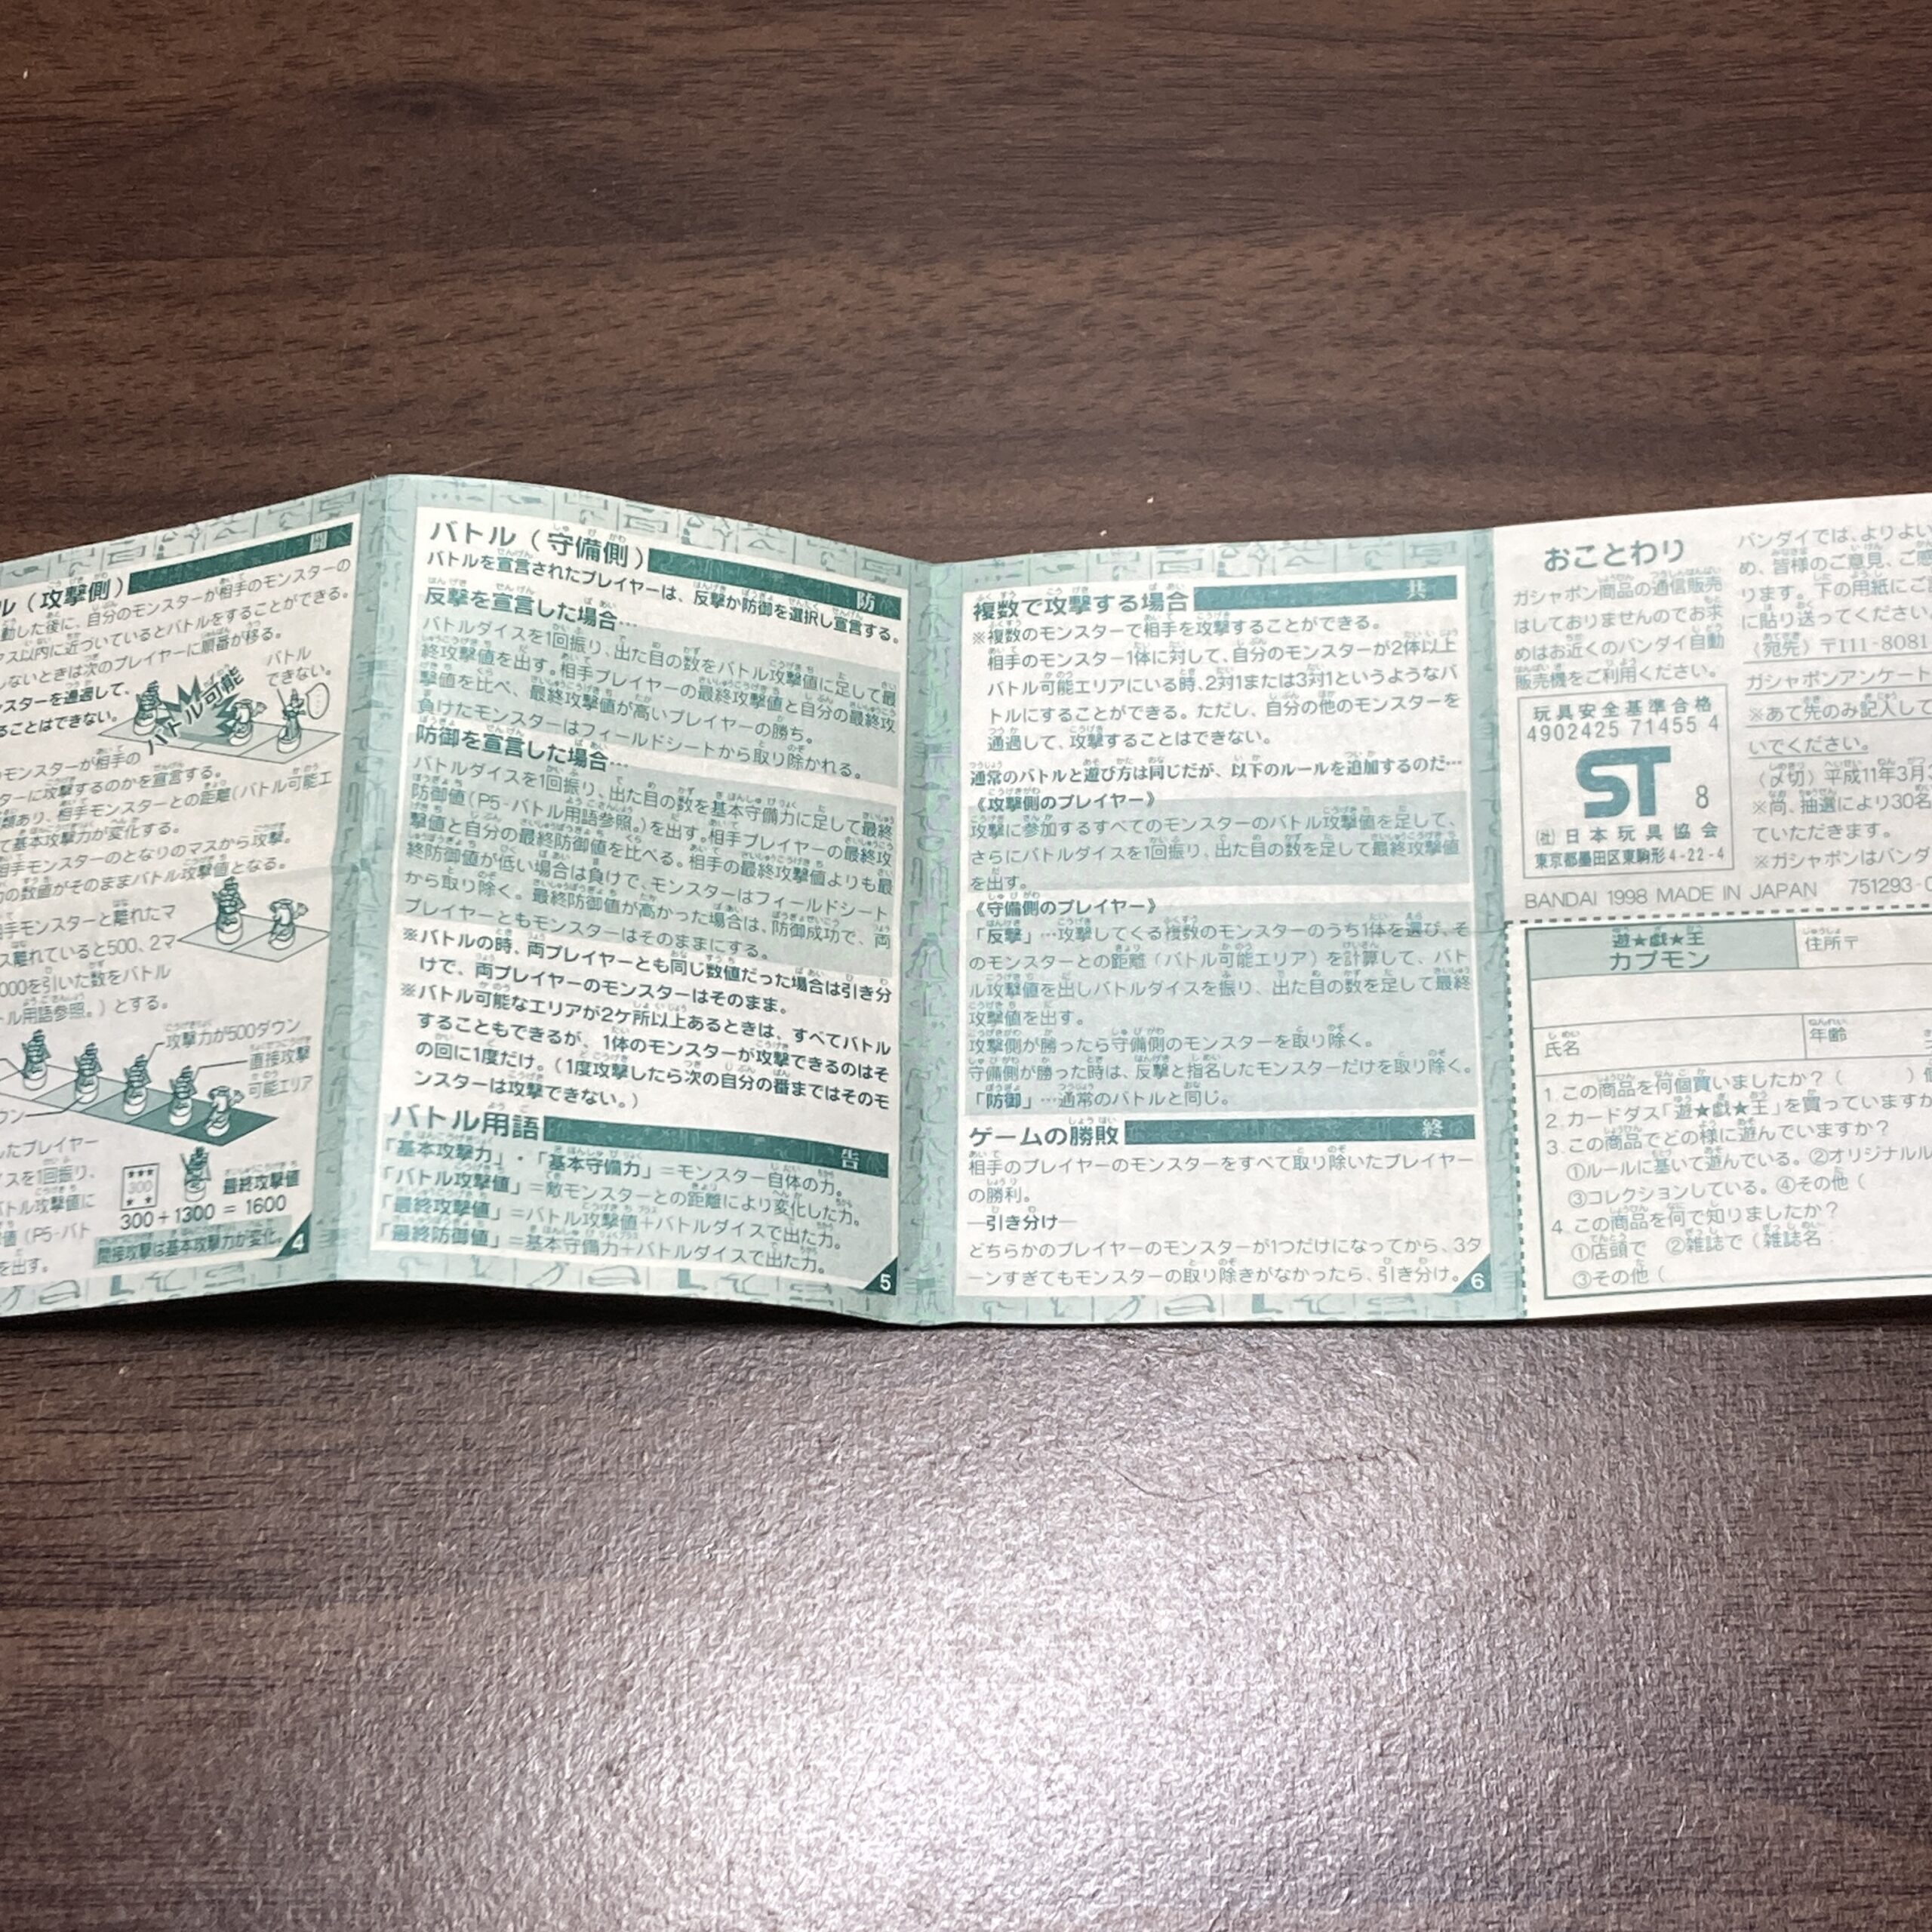 ル（攻撃側）
闘
動した後に、自分のモンスターが相手のモンスターの
マス以内に近づいているとバトルをすることができる。
しないときは次のプレイヤーに順番が移る。
スターを通過して、
ることはできない。
バトル可能
バトル
できない。
モンスターが相手の
ターに攻撃するのかを宣言する。
類あり、相手モンスターとの距離（バトル可能エ
て基本攻撃力が変化する。
相手モンスターのとなりのマスから攻撃。
の数値がそのままバトル攻撃値となる。
手モンスターと離れたマ
ス離れていると500、2マ
000を引いた数をバトル
ル用語参照。）とする。
攻撃力が500ダウン
直接攻撃
可能エリア
ウン
たプレイヤー
イスを1回振り、
バトル攻撃値に
値（P5-バト
を出す。
300
最終攻撃値
300＋1300＝1600
間接攻撃は基本攻撃力が変化。
4
バトル（守備側）
防
バトルを宣言されたプレイヤーは、反撃か防御を選択し宣言する。
反撃を宣言した場合…
バトルダイスを1回振り、出た目の数をバトル攻撃値に足して最
終攻撃値を出す。相手プレイヤーの最終攻撃値と自分の最終攻
撃値を比べ、最終攻撃値が高いプレイヤーの勝ち。
負けたモンスターはフィールドシートから取り除かれる。
防御を宣言した場合…
バトルダイスを1回振り、出た目の数を基本守備力に足して最終
防御値（P5-バトル用語参照。）を出す。相手プレイヤーの最終攻
撃値と自分の最終防御値を比べる。相手の最終攻撃値よりも最
終防御値が低い場合は負けで、モンスターはフィールドシート
から取り除く。最終防御値が高かった場合は、防御成功で、両
プレイヤーともモンスターはそのままにする。
※バトルの時、両プレイヤーとも同じ数値だった場合は引き分
けで、両プレイヤーのモンスターはそのまま。
※バトル可能なエリアが2ケ所以上あるときは、すべてバトル
することもできるが、1体のモンスターが攻撃できるのはそ
の回に1度だけ。（1度攻撃したら次の自分の番まではそのモ
ンスターは攻撃できない。）
バトル用語
告
「基本攻撃力」・「基本守備力」＝モンスター自体の力。
「バトル攻撃値」＝敵モンスターとの距離により変化した力。
「最終攻撃値」＝バトル攻撃値＋バトルダイスで出た力。
「最終防御値」＝基本守備力＋バトルダイスで出た力。
5
複数で攻撃する場合
共
※複数のモンスターで相手を攻撃することができる。
相手のモンスター1体に対して、自分のモンスターが2体以上
バトル可能エリアにいる時、2対1または3対1というようなバ
トルにすることができる。ただし、自分の他のモンスターを
通過して、攻撃することはできない。
通常のバトルと遊び方は同じだが、以下のルールを追加するのだ…
《攻撃側のプレイヤー》
攻撃に参加するすべてのモンスターのバトル攻撃値を足して、
さらにバトルダイスを1回振り、出た目の数を足して最終攻撃値
を出す。
《守備側のプレイヤー》
「反撃」…攻撃してくる複数のモンスターのうち1体を選び、そ
のモンスターとの距離（バトル可能エリア）を計算して、バト
ル攻撃値を出しバトルダイスを振り、出た目の数を足して最終
攻撃値を出す。
攻撃側が勝ったら守備側のモンスターを取り除く。
守備側が勝った時は、反撃と指名したモンスターだけを取り除く。
「防御」…通常のバトルと同じ。
ゲームの勝敗
終
相手のプレイヤーのモンスターをすべて取り除いたプレイヤー
の勝利。
―引き分け―
どちらかのプレイヤーのモンスターが1つだけになってから、3タ
ーンすぎてもモンスターの取り除きがなかったら、引き分け。
6
おことわり
ガシャポン商品の通信販売
はしておりませんのでお求
めはお近くのバンダイ自動
販売機をご利用ください。
玩具安全基準合格
4902425 71455 4
ST
8
（社）日本玩具協会
東京都墨田区東駒形4-22-4
BANDAI 1998 MADE IN JAPAN 751293-
バンダイでは、よりよい
め、皆様のご意見、ご感
ります。下の用紙にご
に貼り送ってください
（宛先）〒111-8081
ガシャポンアンケート
※あて先のみ記入して
いでください。
（〆切）平成11年3月
※尚、抽選により30名
ていただきます。
※ガシャポンはバンダ
遊★戯★王
カプモン
住所〒
氏名
年齢
1.この商品を何個買いましたか？（　　　）個
2.カードダス「遊★戯★王」を買っていますか
3.この商品でどの様に遊んでいますか？
①ルールに基いて遊んでいる。②オリジナルル
③コレクションしている。④その他（
4.この商品を何で知りましたか？
①店頭で ②雑誌で（雑誌名
③その他（